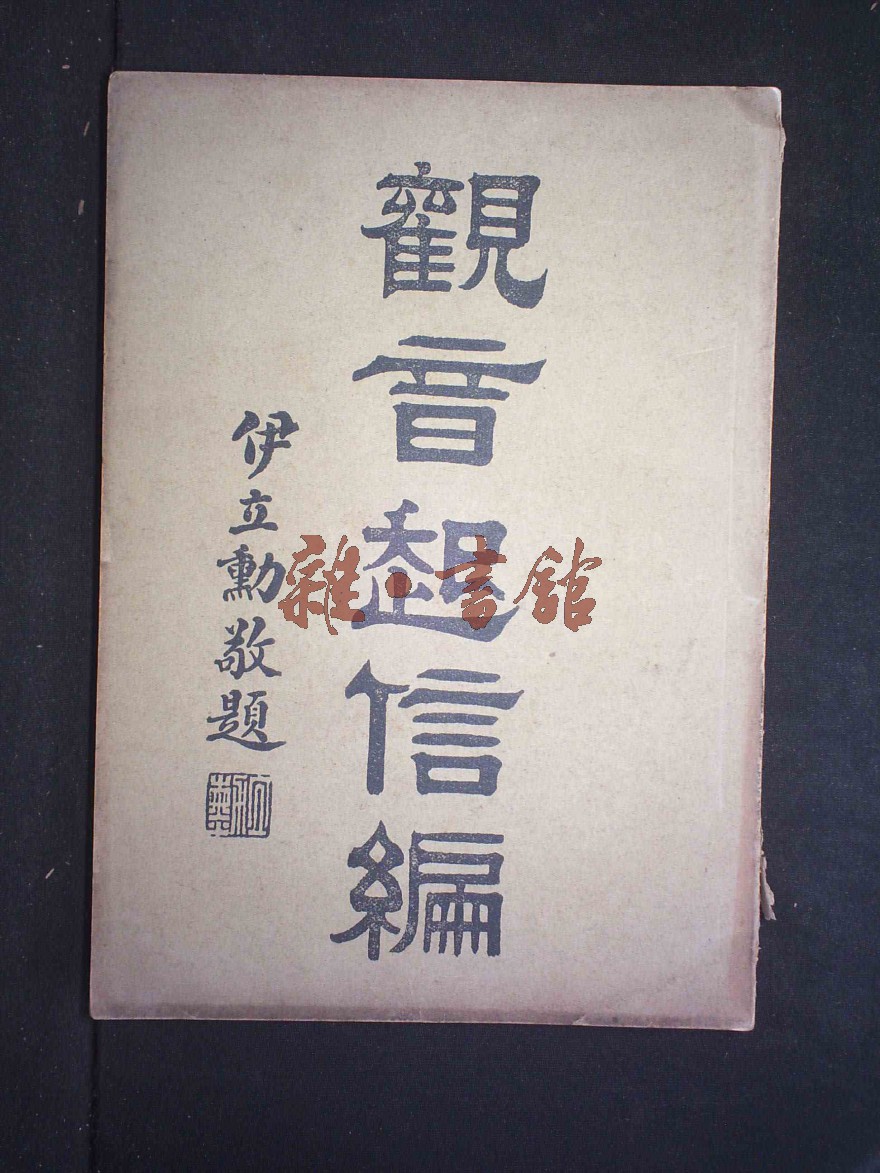 觀音起信編
伊立勳敬題
雜·書館